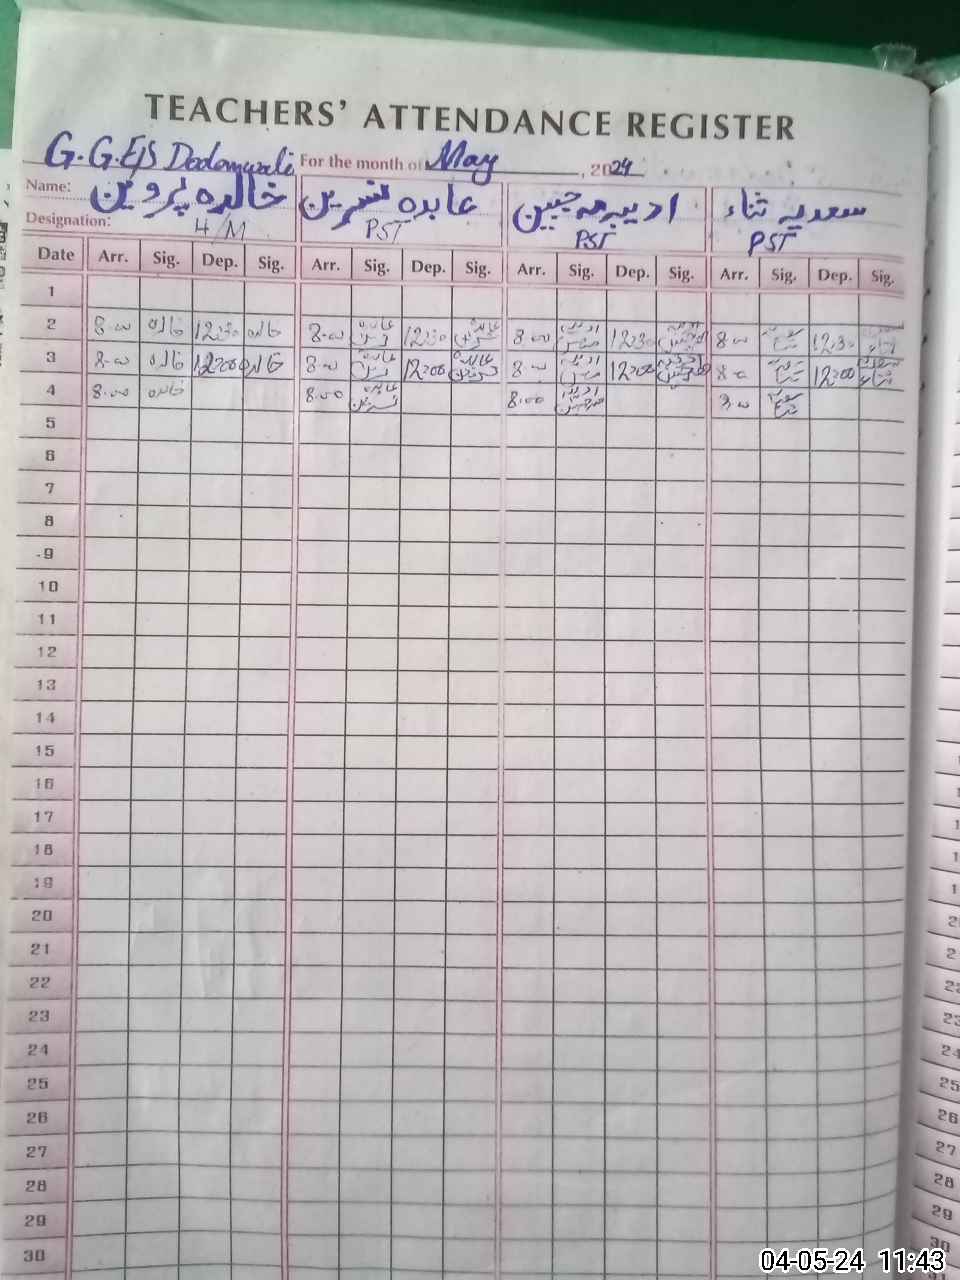 TEACHERS' ATTENDANCE REGISTER
G.G.E/S For the month of May, 2024
Name: خالدہ پروین عابدہ نسرین ادیبہ مہ جبین سعدیہ ثناء
Designation: H/M PST PST PST
Date Arr. Sig. Dep. Sig. Arr. Sig. Dep. Sig. Arr. Sig. Dep. Sig. Arr. Sig. Dep. Sig.
1
2 8.00 خالدہ 12:30 خالدہ 8.00 عابدہ نسرین 12:30 عابدہ نسرین 8.00 12:30 8.00 12:30
3 8.00 خالدہ 12:00 خالدہ 8.00 عابدہ نسرین 12:00 عابدہ نسرین 8.00 12:00 8.00 12:00
4 8.00 خالدہ 8.00 عابدہ نسرین 8.00 8.00
5
6
7
8
9
10
11
12
13
14
15
16
17
18
19
20
21
22
23
24
25
26
27
28
29
30
04-05-24 11:43